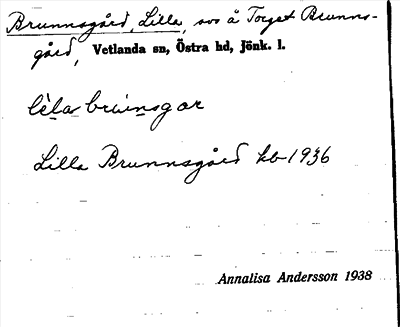 Brunnsgård, Lilla, svo å Torget Brunns-
gård, Vetlanda sn, Östra hd, Jönk. l.
lìla brùnsgar
Lilla Brunnsgård kb 1936
Annalisa Andersson 1938